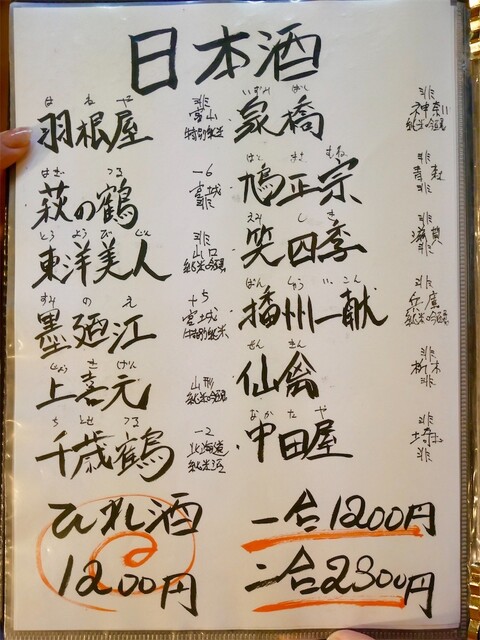 日本酒
はねや
羽根屋
非
富山
特別純米
はぎ つる
萩の鶴
-6
宮城
非
とうようびじん
東洋美人
非
山口
純米吟醸
すみのえ
墨廼江
+5
宮城
特別純米
じょうきげん
上喜元
山形
純米吟醸
ちとせつる
千歳鶴
-2
北海道
純米酒
いずみばし
泉橋
非
神奈川
純米吟醸
はとまさむね
鳩正宗
非
青森
非
えみしき
笑四季
非
滋賀
非
ばんしゅういっこん
播州一献
非
兵庫
純米吟醸
せんきん
仙禽
非
栃木
非
なかたや
中田屋
非
埼玉
非
ひれ酒
1200円
一合1200円
二合2300円